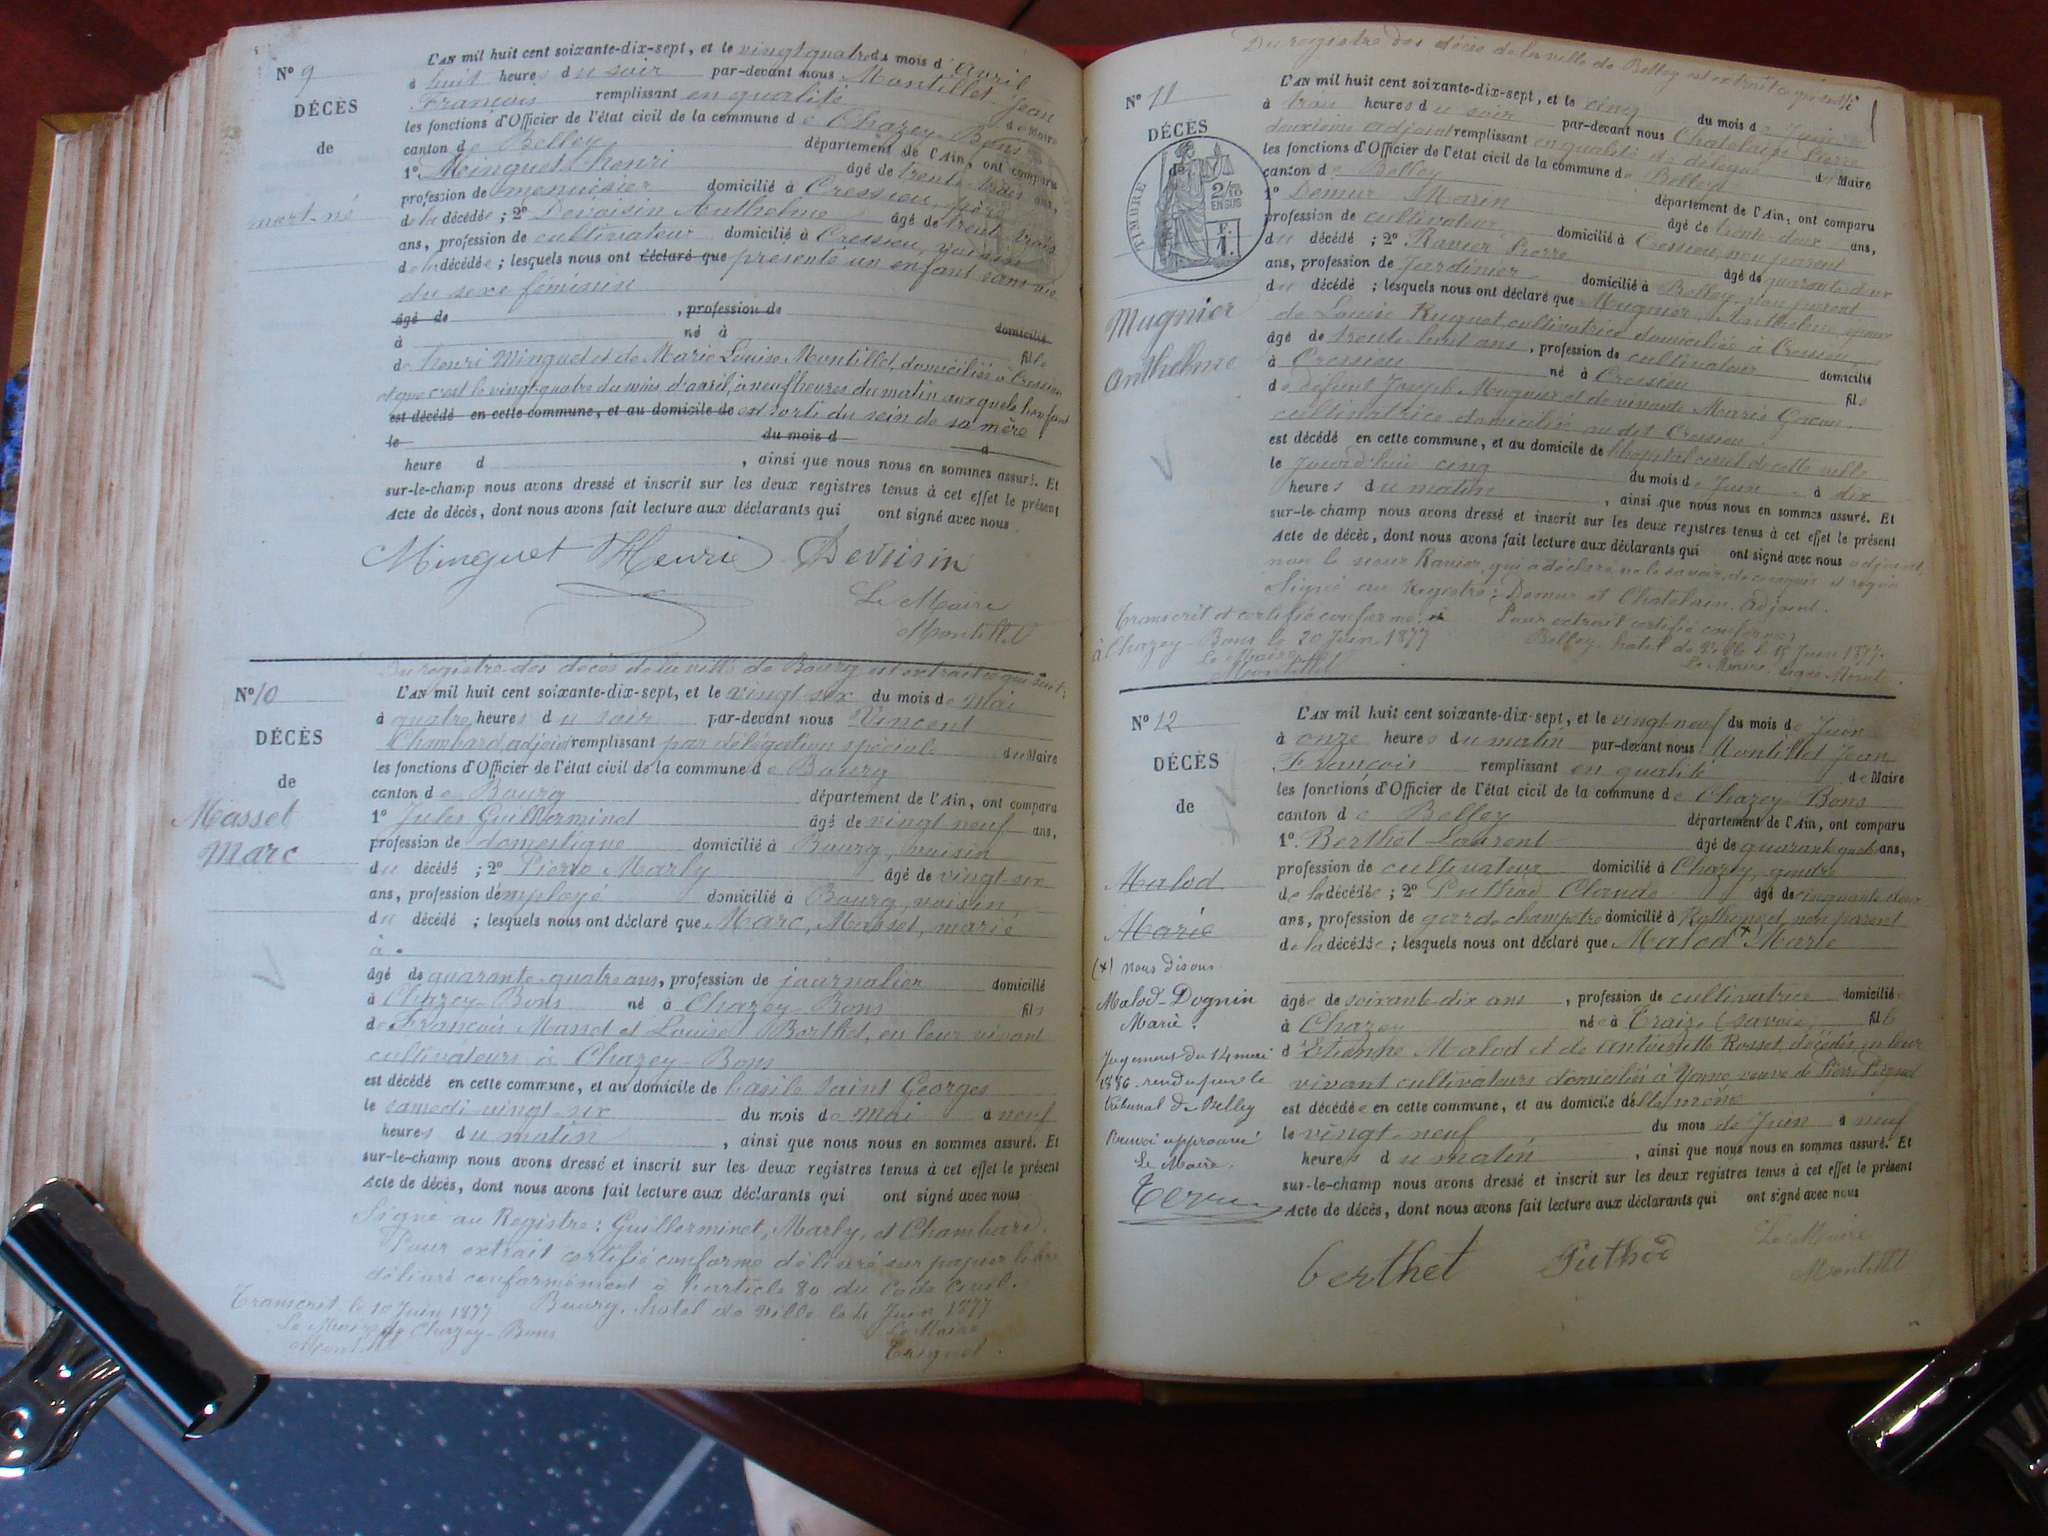 N° 9
DÉCÈS
de
mort-né
L'AN mil huit cent soixante-dix-sept, et le vingt quatre du mois d'avril
à huit heures du soir par-devant nous Montillet Jean
François remplissant en qualité de Maire
les fonctions d'Officier de l'état civil de la commune de Chazey-Bons
canton de Belley département de l'Ain, ont comparu
1° Minguet henri âgé de trente trois ans,
profession de menuisier domicilié à Cressieu, père
de la décédée ; 2° Devoisin Anthelme âgé de trente trois
ans, profession de cultivateur domicilié à Cressieu, voisin
de la décédée ; lesquels nous ont déclaré que présenté un enfant sans vie
du sexe féminin
âgé de , profession de domicilié
à né à fille
de henri Minguet et de Marie Louise Montillet, domiciliés à Cressieu
et que c'est le vingt quatre du mois d'avril, à neuf heures du matin auxquels l'enfant
est décédé en cette commune, et au domicile de est sorti du sein de sa mère.
le du mois d à
heure d , ainsi que nous nous en sommes assuré. Et
sur-le-champ nous avons dressé et inscrit sur les deux registres tenus à cet effet le présent
Acte de décès, dont nous avons fait lecture aux déclarants qui ont signé avec nous
Minguet Henri Devoisin
Le Maire
Montillet
Du registre des décès de la ville de Bourg est extrait ce qui suit:
N° 10
DÉCÈS
de
Masset
Marc
L'AN mil huit cent soixante-dix-sept, et le vingt-six du mois de Mai
à quatre heures du soir par-devant nous Vincent
Chambard adjoint remplissant par délégation spéciale du Maire
les fonctions d'Officier de l'état civil de la commune de Bourg
canton de Bourg département de l'Ain, ont comparu
1° Jules Guillerminet âgé de vingt neuf ans,
profession de domestique domicilié à Bourg, voisin
du décédé ; 2° Pierre Marly âgé de vingt-six
ans, profession d'employé domicilié à Bourg, voisin
du décédé ; lesquels nous ont déclaré que Marc, Masset, marié
à
âgé de quarante-quatre ans, profession de journalier domicilié
à Chazey-Bons né à Chazey-Bons fils
de François Masset et Louise Berthet, en leur vivant
cultivateurs à Chazey-Bons
est décédé en cette commune, et au domicile de l'asile Saint Georges
le samedi vingt-six du mois de Mai à neuf
heures du matin , ainsi que nous nous en sommes assuré. Et
sur-le-champ nous avons dressé et inscrit sur les deux registres tenus à cet effet le présent
Acte de décès, dont nous avons fait lecture aux déclarants qui ont signé avec nous
Signé au Registre: Guillerminet, Marly, et Chambard.
Pour extrait certifié conforme délivré sur papier libre
délivré conformément à l'article 80 du Code Civil.
Transcrit le 10 Juin 1877 Bourg, hotel de ville le 4 Juin 1877
Le Maire de Chazey-Bons Le Maire
Montillet
Du registre des décès de la ville de Belley est extrait ce qui suit
N° 11
DÉCÈS
TIMBRE
2/10
EN SUS
Mugnier
Anthelme
L'AN mil huit cent soixante-dix-sept, et le cinq du mois de Juin
à trois heures du soir par-devant nous Chatelain Pierre
deuxième adjoint remplissant en qualité de délégué du Maire
les fonctions d'Officier de l'état civil de la commune de Belley
canton de Belley département de l'Ain, ont comparu
1° Demur Marin âgé de trente-deux ans,
profession de cultivateur domicilié à Cressieu, non parent
du décédé ; 2° Ranier Pierre âgé de quarante deux
ans, profession de Jardinier domicilié à Belley non parent
du décédé ; lesquels nous ont déclaré que Mugnier, Anthelme, époux
de Louise Ruguet cultivatrice domiciliée à Cressieu
âgé de trente huit ans , profession de cultivateur domicilié
à Cressieu né à Cressieu fils
de défunt Joseph Mugnier et de vivante Marie Gacon
cultivatrice domiciliée au dit Cressieu
est décédé en cette commune, et au domicile de l'hôpital de cette ville
le jourd'hui cinq du mois de Juin à dix
heures du matin , ainsi que nous nous en sommes assuré. Et
sur-le-champ nous avons dressé et inscrit sur les deux registres tenus à cet effet le présent
Acte de décès, dont nous avons fait lecture aux déclarants qui ont signé avec nous adjoint,
non le sieur Ranier, qui a déclaré ne le savoir, de ce enquis et requis
Signé au Registre: Demur et Chatelain. Adjoint.
Transcrit et certifié conforme Pour extrait certifié conforme
à Chazey-Bons le 20 Juin 1877 Belley, hotel de ville le 18 Juin 1877.
Le Maire Le Maire, signé
Montillet
N° 12
DÉCÈS
de
Malod
Marie
(x) nous disons
Malod-Dognin
Marie.
Jugement du 14 mai
1886 rendu par le
tribunal de Belley
Renvoi approuvé
Le Maire,
L'AN mil huit cent soixante-dix-sept, et le vingt neuf du mois de Juin
à onze heures du matin par-devant nous Montillet Jean
François remplissant en qualité de Maire
les fonctions d'Officier de l'état civil de la commune de Chazey-Bons
canton de Belley département de l'Ain, ont comparu
1° Berthet Laurent âgé de quarante quatre ans,
profession de cultivateur domicilié à Chazey, gendre
de la décédée ; 2° Puthod Claude âgé de cinquante deux
ans, profession de garde champêtre domicilié à Rothonod, non parent
de la décédée ; lesquels nous ont déclaré que Malod (x) Marie
âgée de soixante-dix ans , profession de cultivatrice domiciliée
à Chazey née à Traize (Savoie) fille
d'Etienne Malod et de Antoinette Rosset, décédés en leur
vivant cultivateurs domiciliés à Yenne veuve de Pierre
est décédée en cette commune, et au domicile d'elle même
le vingt-neuf du mois de Juin à neuf
heures du matin , ainsi que nous nous en sommes assuré. Et
sur-le-champ nous avons dressé et inscrit sur les deux registres tenus à cet effet le présent
Acte de décès, dont nous avons fait lecture aux déclarants qui ont signé avec nous
berthet Puthod Le Maire
Montillet